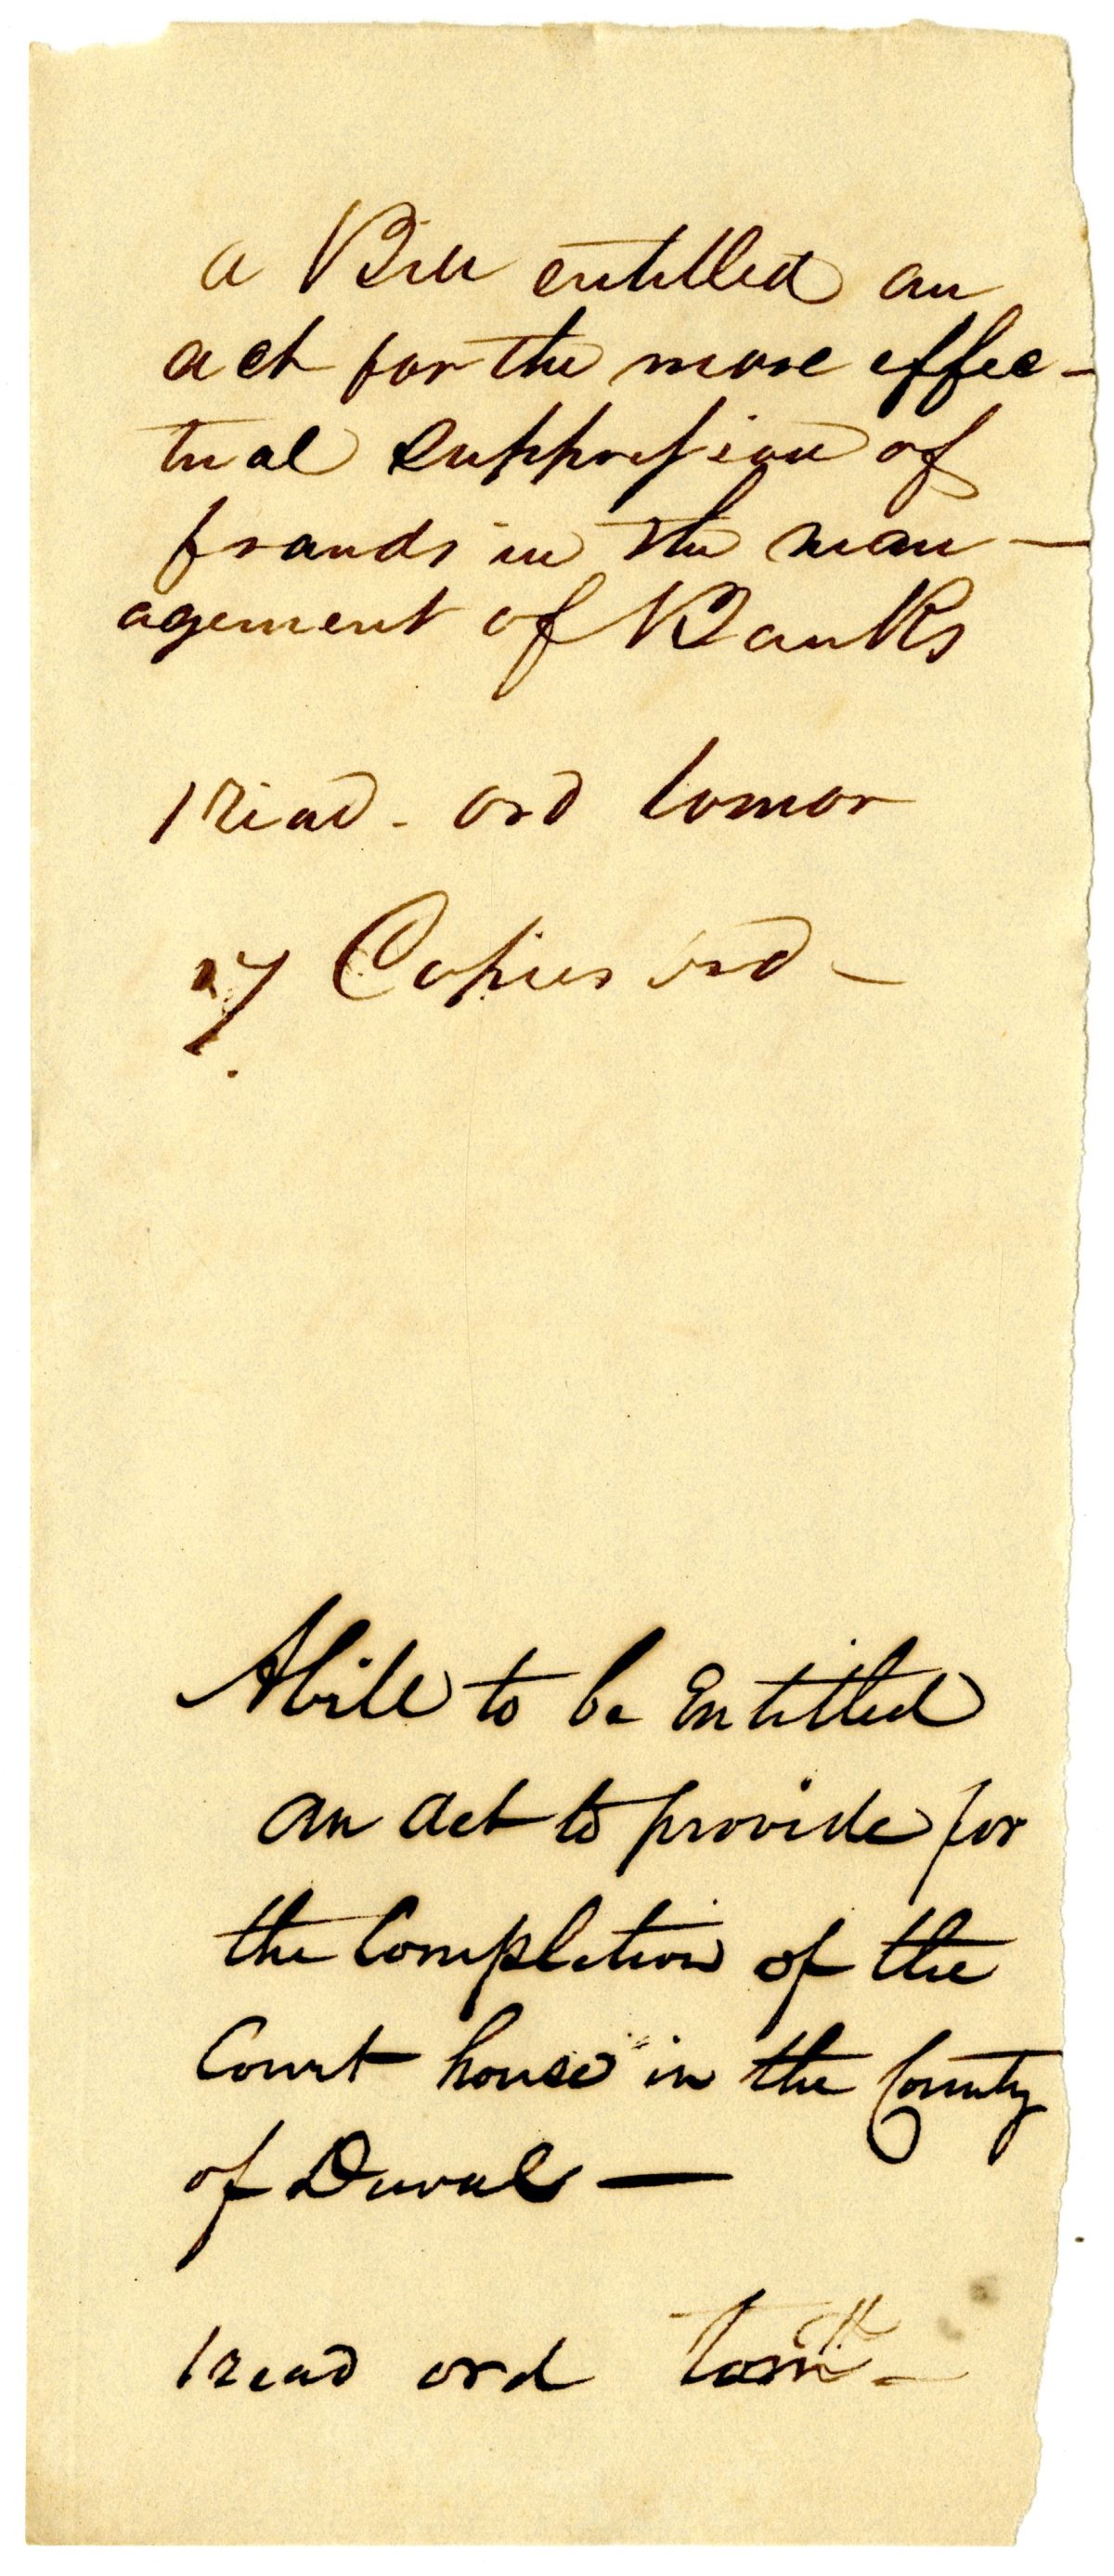 a Bill entitled an
act for the more effec-
tual suppression of
frauds in the man-
agement of Banks
1 Read - ord tomor
Copies ord -
A bill to be Entitled
an act to provide for
the Completion of the
Court house in the County
of Duval —
1 read ord